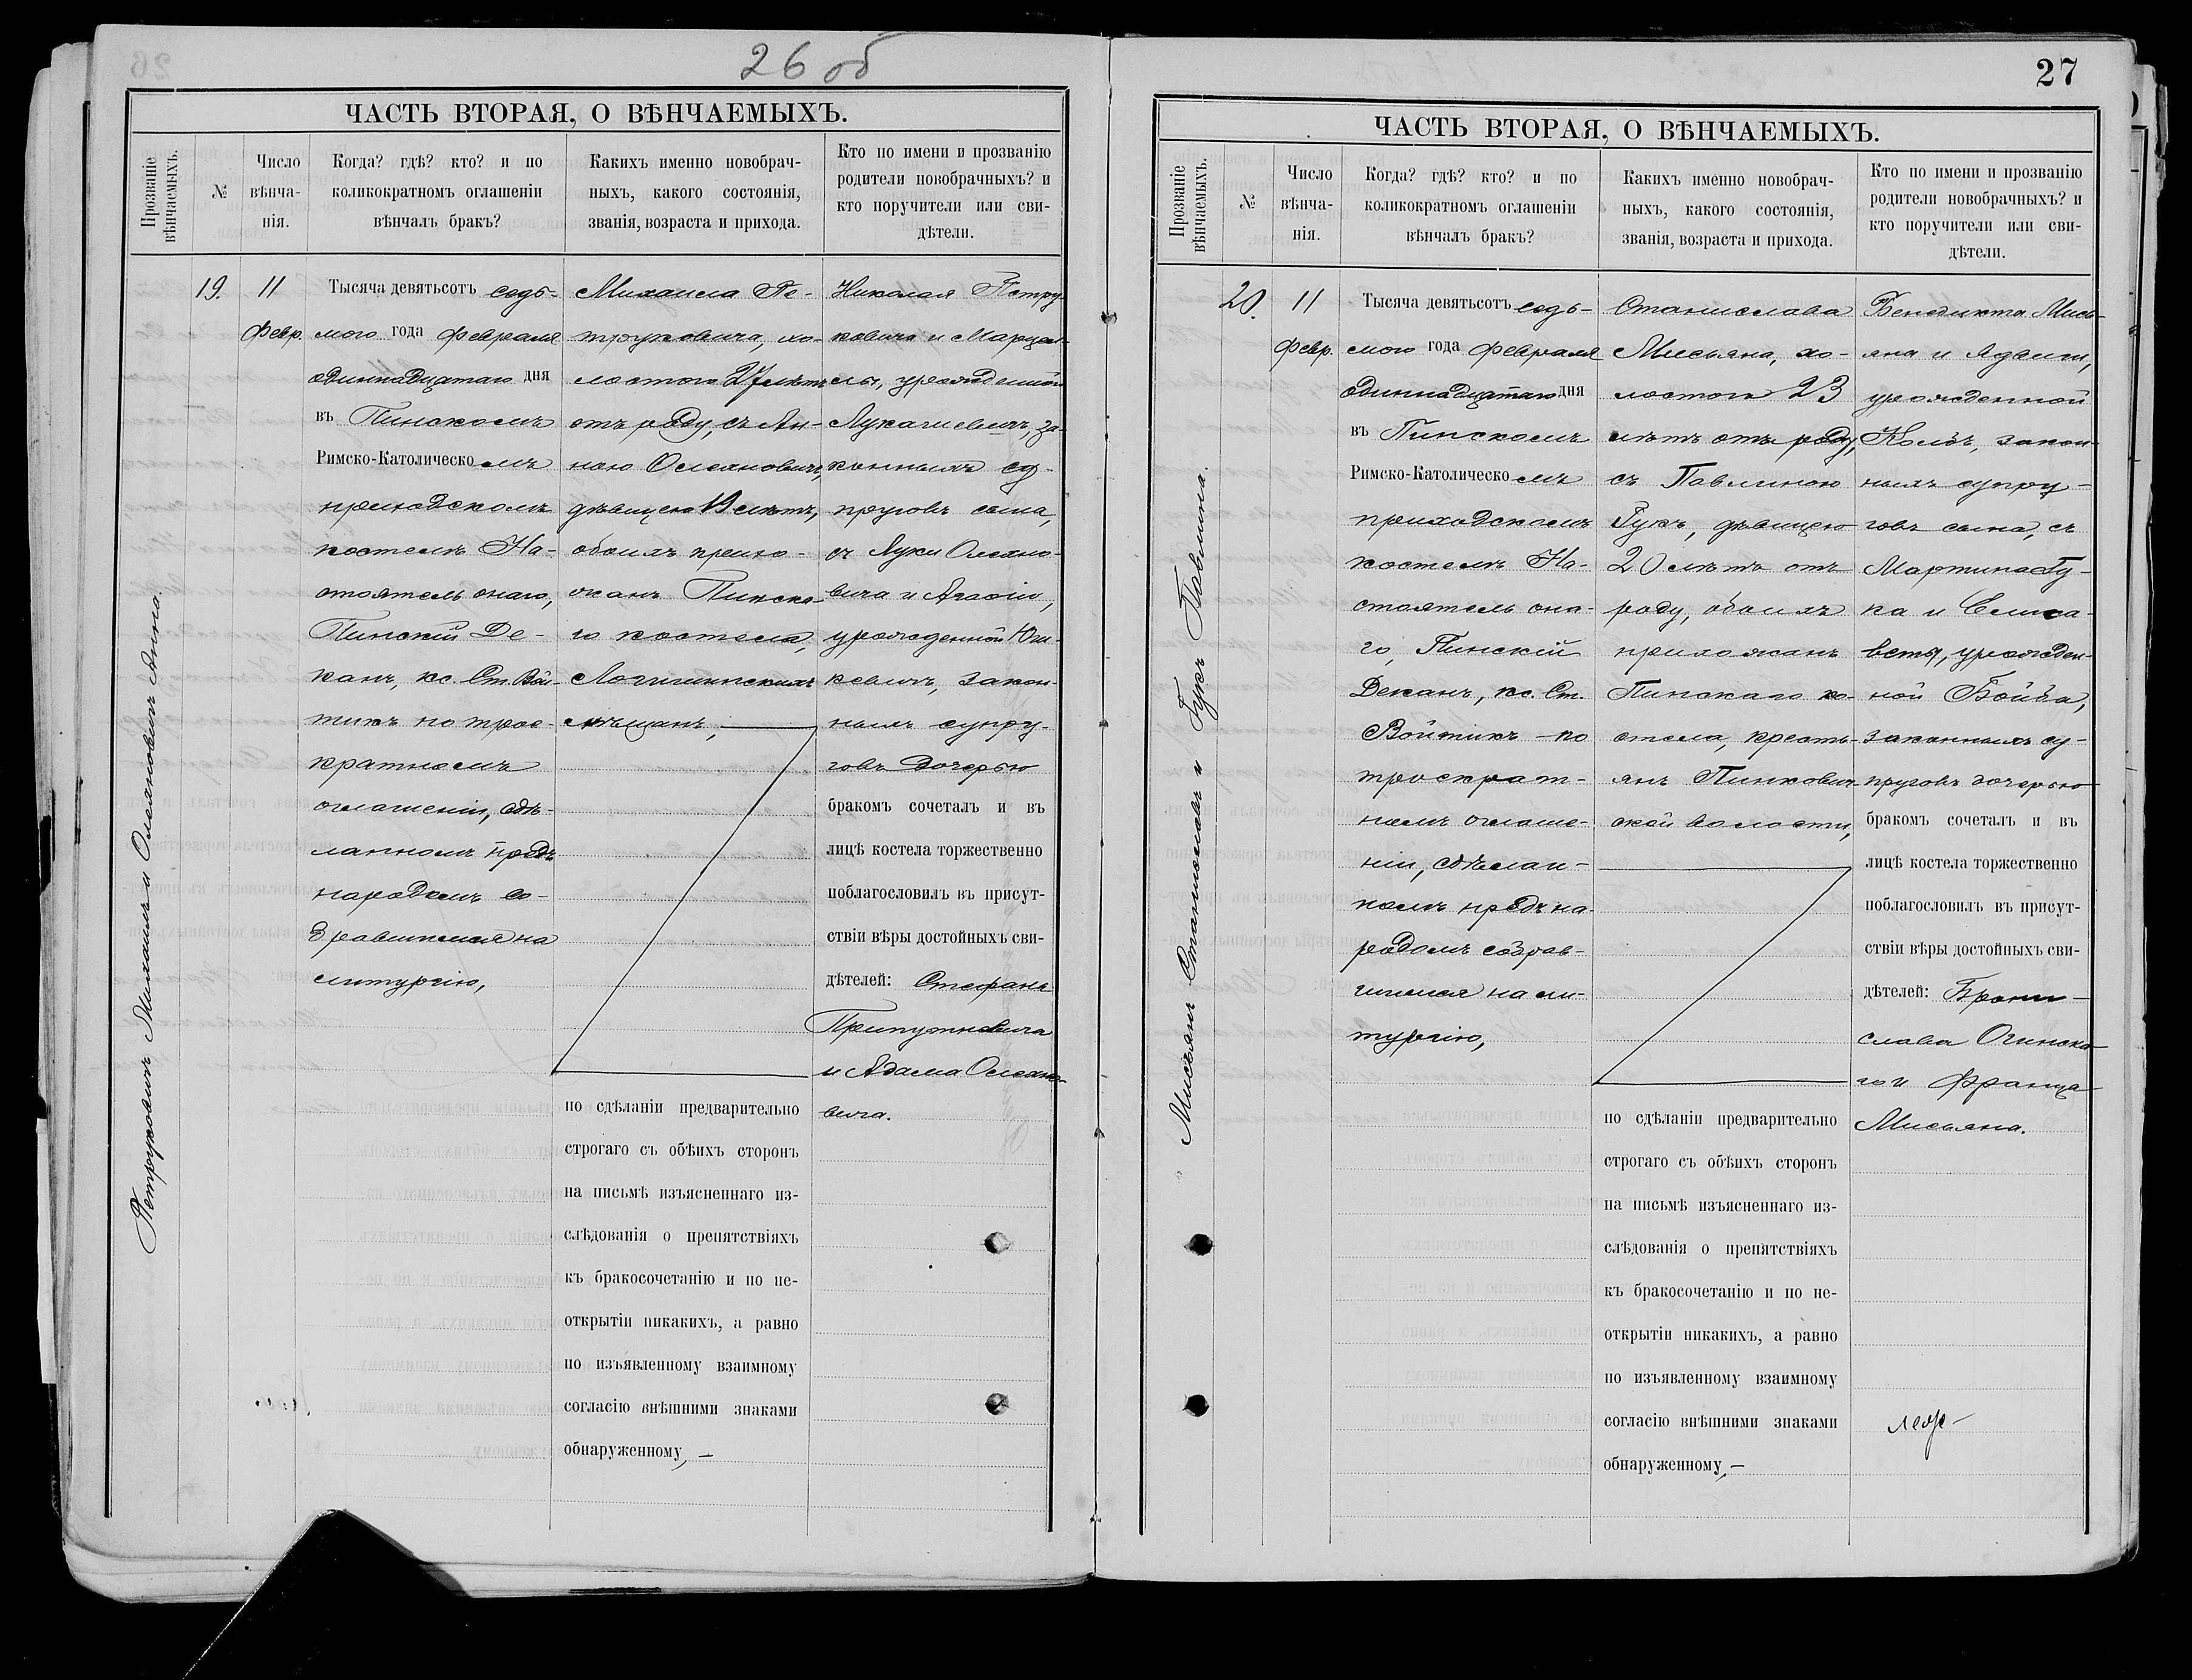 26 об
ЧАСТЬ ВТОРАЯ, О ВѢНЧАЕМЫХЪ.
Прозваніе
вѣнчаемыхъ.
№
Число
вѣнча-
нія.
Когда? гдѣ? кто? и по
коликократномъ оглашеніи
вѣнчалъ бракъ?
Какихъ именно новобрач-
ныхъ, какого состоянія,
званія, возраста и прихода.
Кто по имени и прозванію
родители новобрачныхъ? и
кто поручители или сви-
дѣтели.
Петруковичъ Михаилъ и Олехновичъ Анна.
19.
11
Февр.
Тысяча девятьсотъ седь-
мого года Февраля
одиннадцатаго дня
въ Пинскомъ
Римско-Католическомъ
приходскомъ
костелѣ На-
стоятель онаго,
Пинскій Де-
канъ, кс. Ст. Вой-
тикъ по трое-
кратномъ
оглашеніи, сдѣ-
ланномъ предъ
народомъ со-
бравшимся на
литургію,
Михаила Пе-
труковича, хо-
лостого 27 лѣтъ
отъ роду, съ Ан-
ною Олехновичъ,
дѣвицею 19 лѣтъ,
обоихъ прихо-
жанъ Пинска-
го костела,
Логишинскихъ
мѣщанъ,
по сдѣланіи предварительно
строгаго съ обѣихъ сторонъ
на письмѣ изъясненнаго из-
слѣдованія о препятствіяхъ
къ бракосочетанію и по не-
открытіи никакихъ, а равно
по изъявленному взаимному
согласію внѣшними знаками
обнаруженному, —
Николая Петру-
ковича и Марцел-
лы, урожденной
Лукашевичъ, за-
конныхъ су-
пруговъ сына,
съ Луки Олехно-
вича и Агафіи,
урожденной Юш-
кевичъ, закон-
ныхъ супру-
говъ дочерью
бракомъ сочеталъ и въ
лицѣ костела торжественно
поблагословилъ въ присут-
ствіи вѣры достойныхъ сви-
дѣтелей: Стефана
Припутневича
и Адама Олехно-
вича.
27
ЧАСТЬ ВТОРАЯ, О ВѢНЧАЕМЫХЪ.
Прозваніе
вѣнчаемыхъ.
№
Число
вѣнча-
нія.
Когда? гдѣ? кто? и по
коликократномъ оглашеніи
вѣнчалъ бракъ?
Какихъ именно новобрач-
ныхъ, какого состоянія,
званія, возраста и прихода.
Кто по имени и прозванію
родители новобрачныхъ? и
кто поручители или сви-
дѣтели.
Мисьянъ Станиславъ и Гукъ Павлина.
20.
11
Февр.
Тысяча девятьсотъ седь-
мого года Февраля
одиннадцатаго дня
въ Пинскомъ
Римско-Католическомъ
приходскомъ
костелѣ На-
стоятель она-
го, Пинскій
Деканъ, кс. Ст.
Войтикъ по
троекрат-
номъ оглаше-
ніи, сдѣлан-
номъ предъ на-
родомъ собрав-
шимся на ли-
тургію,
Станислава
Мисьяна, хо-
лостого 23
лѣтъ отъ роду,
съ Павлиною
Гукъ, дѣвицею
20 лѣтъ отъ
роду, обоихъ
прихожанъ
Пинскаго ко-
стела, кресть-
янъ Пинкович-
ской волости,
по сдѣланіи предварительно
строгаго съ обѣихъ сторонъ
на письмѣ изъясненнаго из-
слѣдованія о препятствіяхъ
къ бракосочетанію и по не-
открытіи никакихъ, а равно
по изъявленному взаимному
согласію внѣшними знаками
обнаруженному, —
Бенедикта Мись-
яна и Ядвиги,
урожденной
Кольбъ, закон-
ныхъ супру-
говъ сына, съ
Мартина Гу-
ка и Елиса-
веты, урожден-
ной Бойба,
законныхъ су-
пруговъ дочерью
бракомъ сочеталъ и въ
лицѣ костела торжественно
поблагословилъ въ присут-
ствіи вѣры достойныхъ сви-
дѣтелей: Брони-
слава Огинска-
го и Франца
Мисьяна.